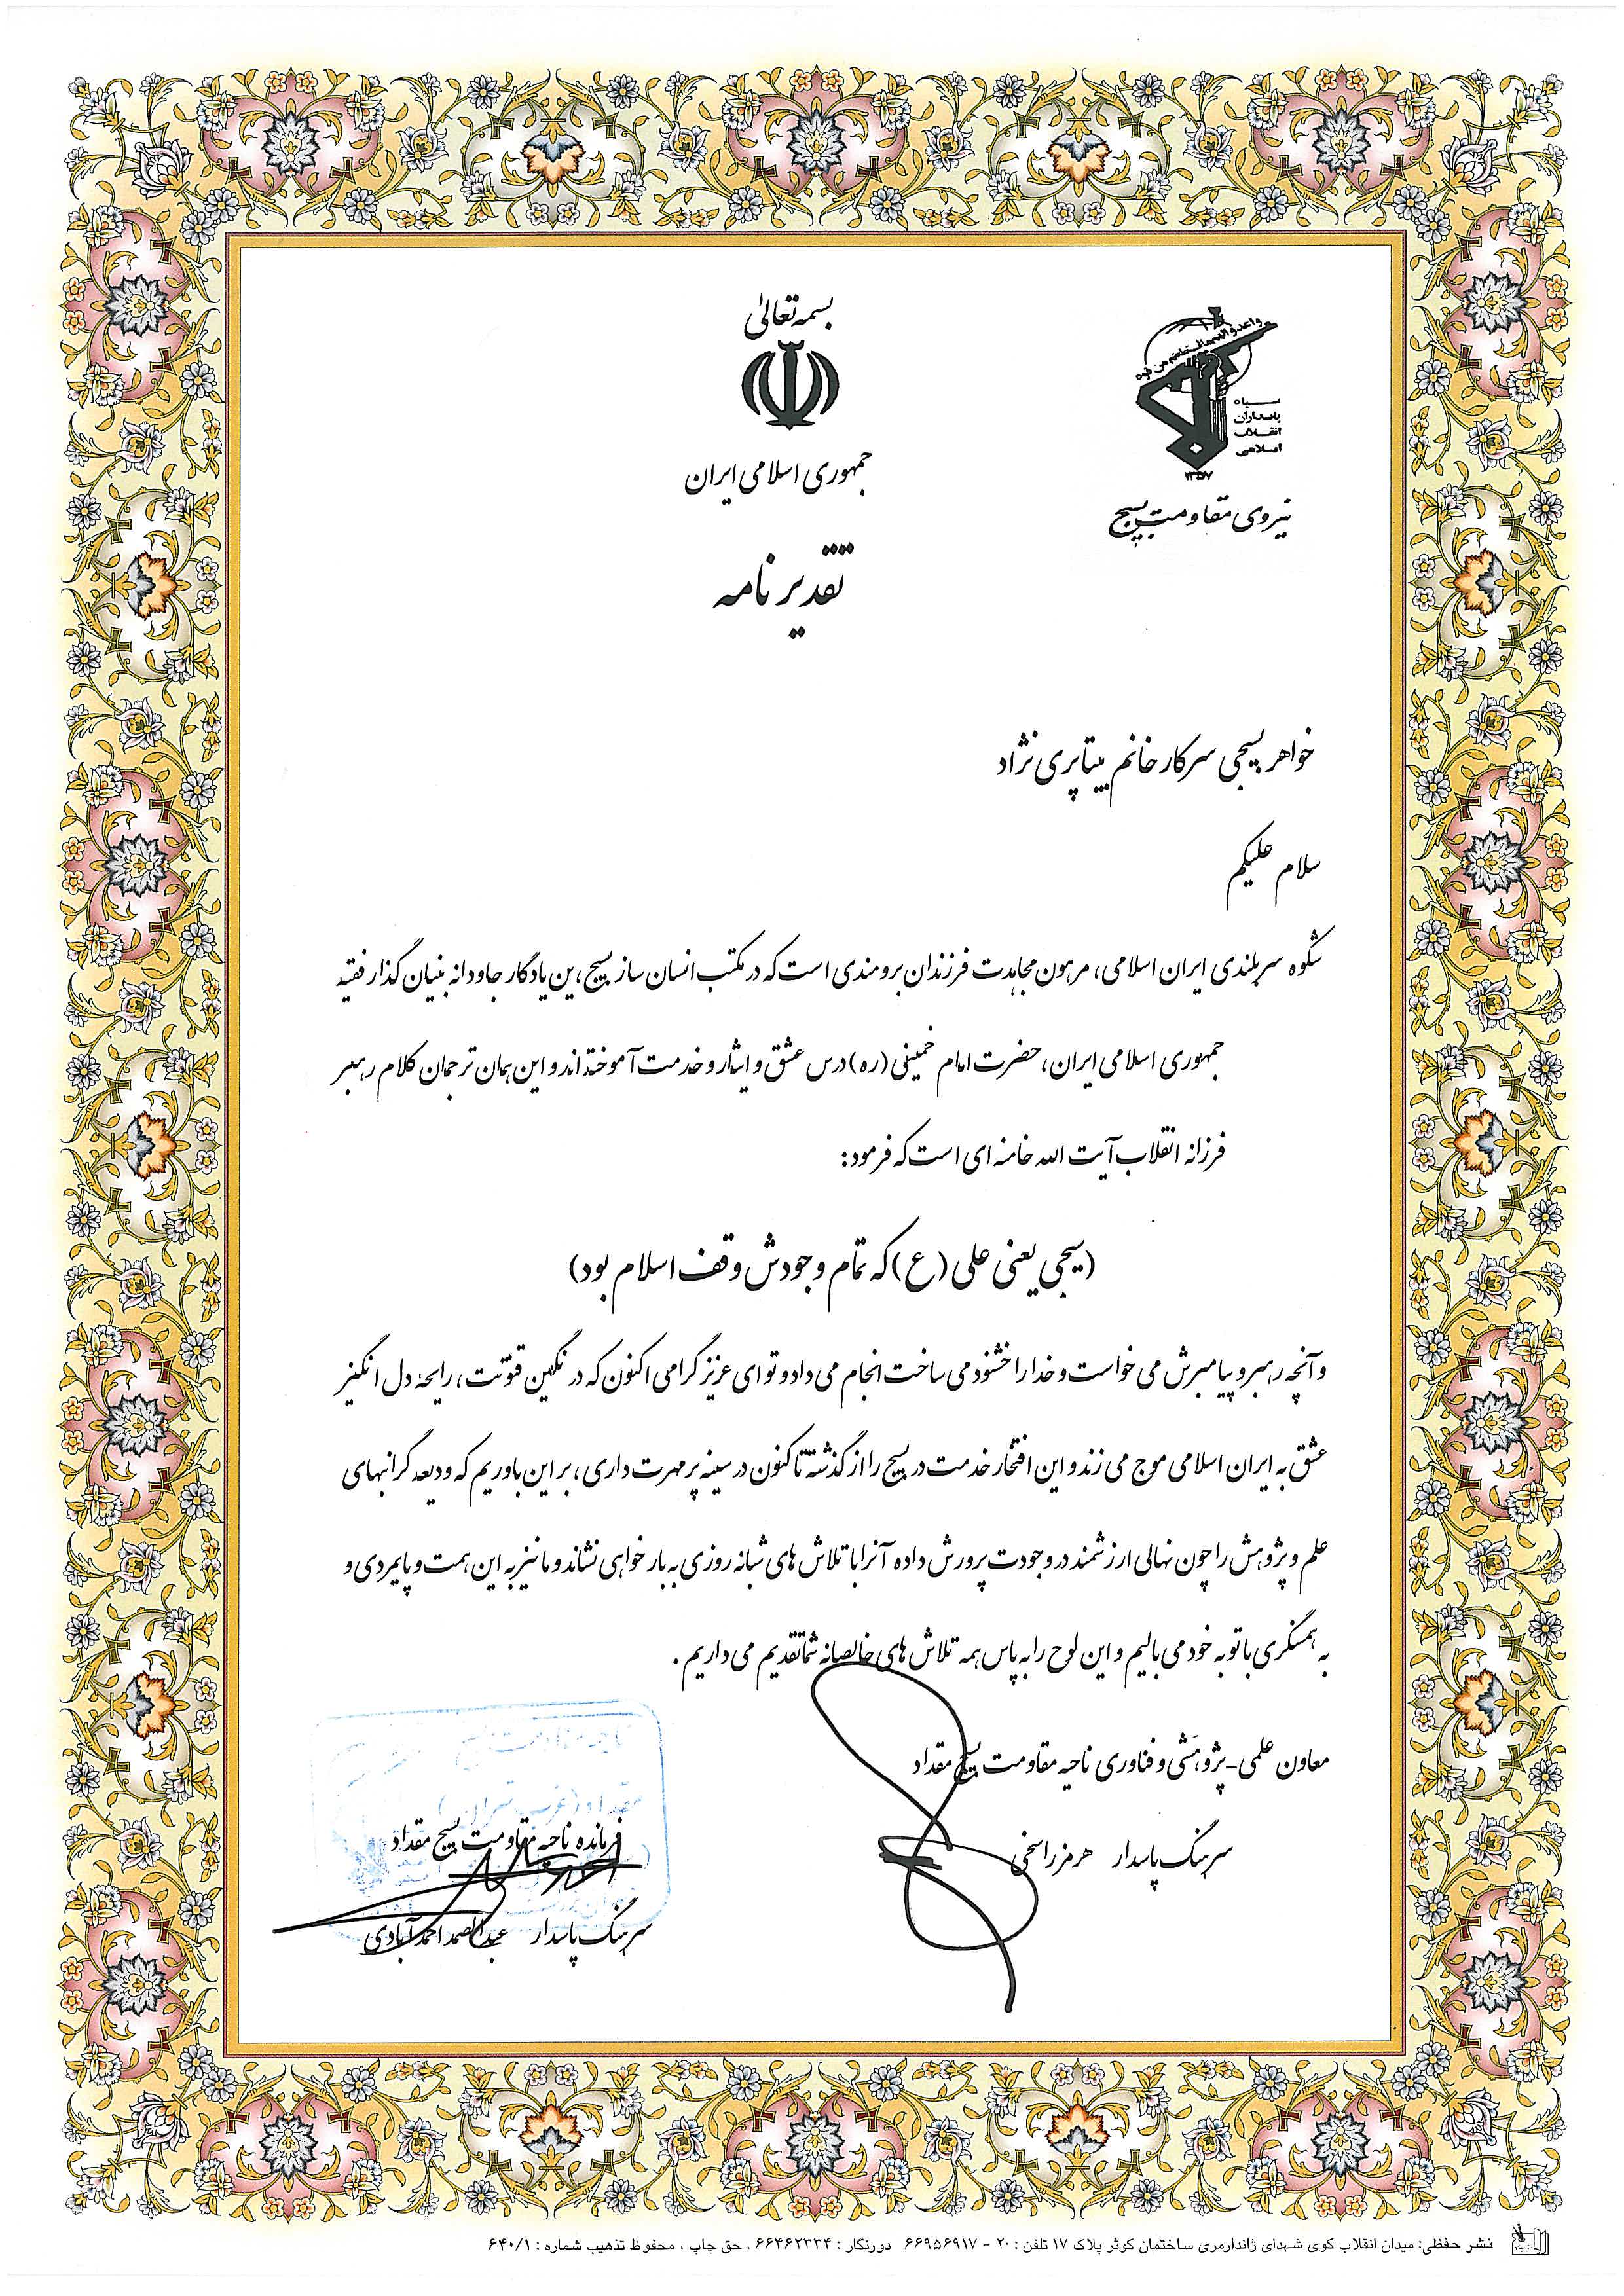 بسمه تعالی
جمهوری اسلامی ایران
سپاه
پاسداران
انقلاب
اسلامی
۱۳۵۷
نیروی مقاومت بسیج
تقدیر نامه
خواهر بسیجی سرکار خانم بیتا پری نژاد
سلام علیکم
شکوه سربلندی ایران اسلامی، مرهون مجاهدت فرزندان برومندی است که در مکتب انسان ساز بسیج، ین یادگار جاودانه بنیان گذار فقید
جمهوری اسلامی ایران، حضرت امام خمینی (ره) درس عشق و ایثار و خدمت آموخته اند و این همان ترجمان کلام رهبر
فرزانه انقلاب آیت الله خامنه ای است که فرمود:
(بسیجی یعنی علی (ع) که تمام وجودش وقف اسلام بود)
و آنچه رهبر و پیامبرش می خواست و خدا را خشنود می ساخت انجام می داد و تو ای عزیز گرامی اکنون که در نگین فتوتت، رایحه دل انگیز
عشق به ایران اسلامی موج می زند و این افتخار خدمت در بسیج را از گذشته تا کنون در سینه پر مهرت داری، بر این باوریم که ودیعه گرانبهای
علم و پژوهش را چون نهالی ارزشمند در وجودت پرورش داده آنرا با تلاش های شبانه روزی به بار خواهی نشاند و ما نیز به این همت و پایمردی و
به همسنگری با تو به خود می بالیم و این لوح را به پاس همه تلاش های خالصانه شما تقدیم می داریم.
معاون علمی-پژوهشی و فناوری ناحیه مقاومت بسیج مقداد
سرهنگ پاسدار هرمز راسخی
فرمانده ناحیه مقاومت بسیج مقداد
سرهنگ پاسدار عبدالصمد احمدآبادی
نشر حفظی: میدان انقلاب کوی شهدای ژاندارمری ساختمان کوثر پلاک ۱۷ تلفن : ۲۰ - ۶۶۹۵۶۹۱۷ دورنگار : ۶۶۴۶۲۳۳۴ . حق چاپ ، محفوظ تذهیب شماره : ۶۴۰/۱